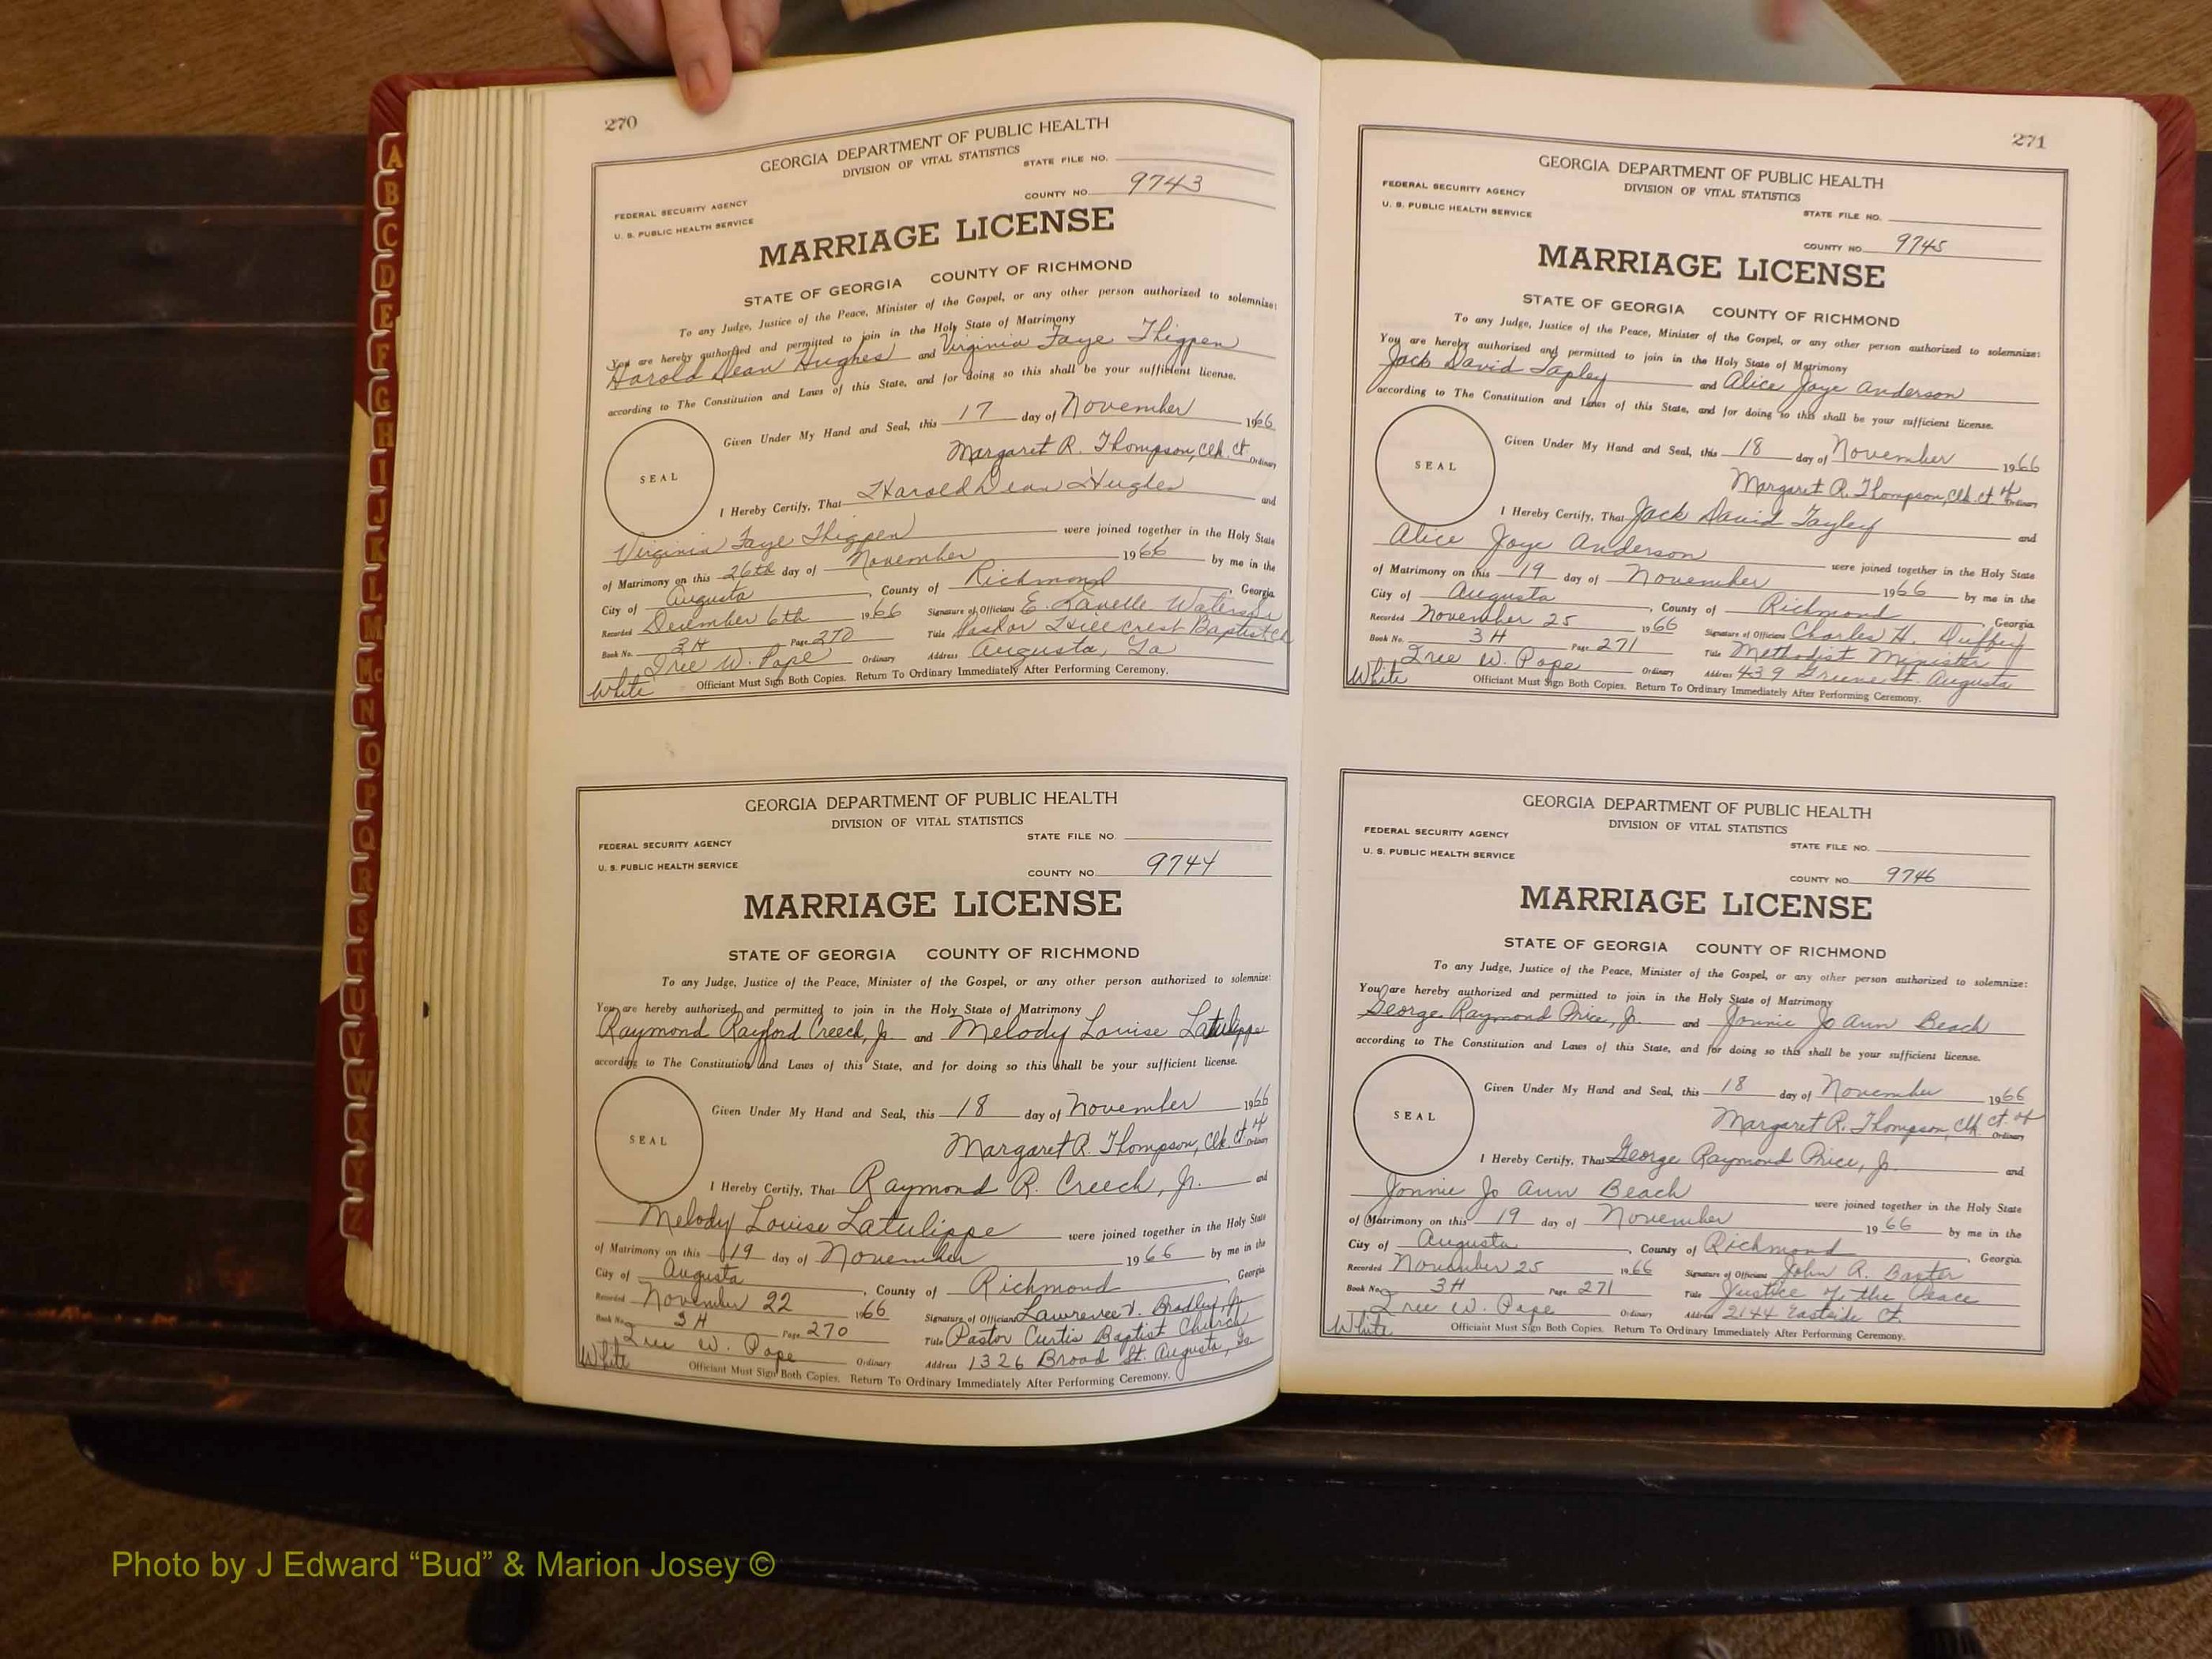 A
B
C
D
E
F
G
H
I
J
K
L
M
Mc
N
O
P
Q
R
S
T
U
V
W
X
Y
Z
270
GEORGIA DEPARTMENT OF PUBLIC HEALTH
DIVISION OF VITAL STATISTICS
STATE FILE NO.
FEDERAL SECURITY AGENCY
COUNTY NO. 9743
U. S. PUBLIC HEALTH SERVICE
MARRIAGE LICENSE
STATE OF GEORGIA COUNTY OF RICHMOND
To any Judge, Justice of the Peace, Minister of the Gospel, or any other person authorized to solemnize:
You are hereby authorized and permitted to join in the Holy State of Matrimony
Harold Dean Hughes and Virginia Faye Thigpen
according to The Constitution and Laws of this State, and for doing so this shall be your sufficient license.
Given Under My Hand and Seal, this 17 day of November 1966
Margaret R. Thompson, Clk. Ct. Ordinary
SEAL
I Hereby Certify, That Harold Dean Hughes and
Virginia Faye Thigpen were joined together in the Holy State
of Matrimony on this 26th day of November 1966 by me in the
City of Augusta, County of Richmond, Georgia
Recorded December 6th 1966 Signature of Officiant E. Lavelle
Book No. 3H Page 270 Title Pastor Hillcrest Baptist Ch
Iree W. Pope Ordinary Address Augusta, Ga
White Officiant Must Sign Both Copies. Return To Ordinary Immediately After Performing Ceremony.
GEORGIA DEPARTMENT OF PUBLIC HEALTH
DIVISION OF VITAL STATISTICS
STATE FILE NO.
FEDERAL SECURITY AGENCY
U. S. PUBLIC HEALTH SERVICE
COUNTY NO. 9744
MARRIAGE LICENSE
STATE OF GEORGIA COUNTY OF RICHMOND
To any Judge, Justice of the Peace, Minister of the Gospel, or any other person authorized to solemnize:
You are hereby authorized and permitted to join in the Holy State of Matrimony
Raymond Rayford Creech, Jr. and Melody Louise Latulippe
according to The Constitution and Laws of this State, and for doing so this shall be your sufficient license.
Given Under My Hand and Seal, this 18 day of November 1966
Margaret R. Thompson, Clk. Ct. of Ordinary
SEAL
I Hereby Certify, That Raymond R. Creech, Jr. and
Melody Louise Latulippe were joined together in the Holy State
of Matrimony on this 19 day of November 1966 by me in the
City of Augusta, County of Richmond, Georgia
Recorded November 22 1966 Signature of Officiant Lawrence V. Bradley, Jr.
Book No. 3H Page 270 Title Pastor Curtis Baptist Church
Iree W. Pope Ordinary Address 1326 Broad St. Augusta, Ga
White Officiant Must Sign Both Copies. Return To Ordinary Immediately After Performing Ceremony.
271
GEORGIA DEPARTMENT OF PUBLIC HEALTH
DIVISION OF VITAL STATISTICS
FEDERAL SECURITY AGENCY
STATE FILE NO.
U. S. PUBLIC HEALTH SERVICE
COUNTY NO. 9745
MARRIAGE LICENSE
STATE OF GEORGIA COUNTY OF RICHMOND
To any Judge, Justice of the Peace, Minister of the Gospel, or any other person authorized to solemnize:
You are hereby authorized and permitted to join in the Holy State of Matrimony
Jack David Tapley and Alice Joye Anderson
according to The Constitution and Laws of this State, and for doing so this shall be your sufficient license.
Given Under My Hand and Seal, this 18 day of November 1966
Margaret R. Thompson, Clk. Ct. of Ordinary
SEAL
I Hereby Certify, That Jack David Tapley and
Alice Joye Anderson were joined together in the Holy State
of Matrimony on this 19 day of November 1966 by me in the
City of Augusta, County of Richmond, Georgia
Recorded November 25 1966 Signature of Officiant Charles H. Duffey
Book No. 3H Page 271 Title Methodist Minister
Iree W. Pope Ordinary Address 439 Greene St. Augusta
White Officiant Must Sign Both Copies. Return To Ordinary Immediately After Performing Ceremony.
GEORGIA DEPARTMENT OF PUBLIC HEALTH
DIVISION OF VITAL STATISTICS
FEDERAL SECURITY AGENCY
STATE FILE NO.
U. S. PUBLIC HEALTH SERVICE
COUNTY NO. 9746
MARRIAGE LICENSE
STATE OF GEORGIA COUNTY OF RICHMOND
To any Judge, Justice of the Peace, Minister of the Gospel, or any other person authorized to solemnize:
You are hereby authorized and permitted to join in the Holy State of Matrimony
George Raymond Price, Jr. and Jonnie Jo Ann Beach
according to The Constitution and Laws of this State, and for doing so this shall be your sufficient license.
Given Under My Hand and Seal, this 18 day of November 1966
Margaret R. Thompson, Clk. Ct. of Ordinary
SEAL
I Hereby Certify, That George Raymond Price, Jr. and
Jonnie Jo Ann Beach were joined together in the Holy State
of Matrimony on this 19 day of November 1966 by me in the
City of Augusta, County of Richmond, Georgia
Recorded November 25 1966 Signature of Officiant John R. Baxter
Book No. 3H Page 271 Title Justice of the Peace
Iree W. Pope Ordinary Address 2144 Eastside Ct.
White Officiant Must Sign Both Copies. Return To Ordinary Immediately After Performing Ceremony.
Photo by J Edward “Bud” & Marion Josey ©